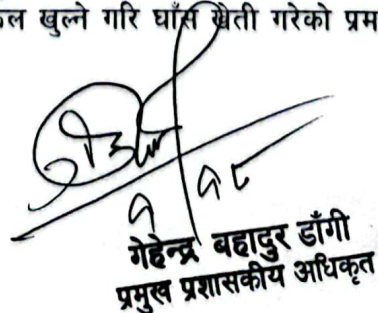 ल खुल्ने गरि घाँस खेती गरेको प्रम
१/१८
गेहेन्द्र बहादुर डाँगी
प्रमुख प्रशासकीय अधिकृत